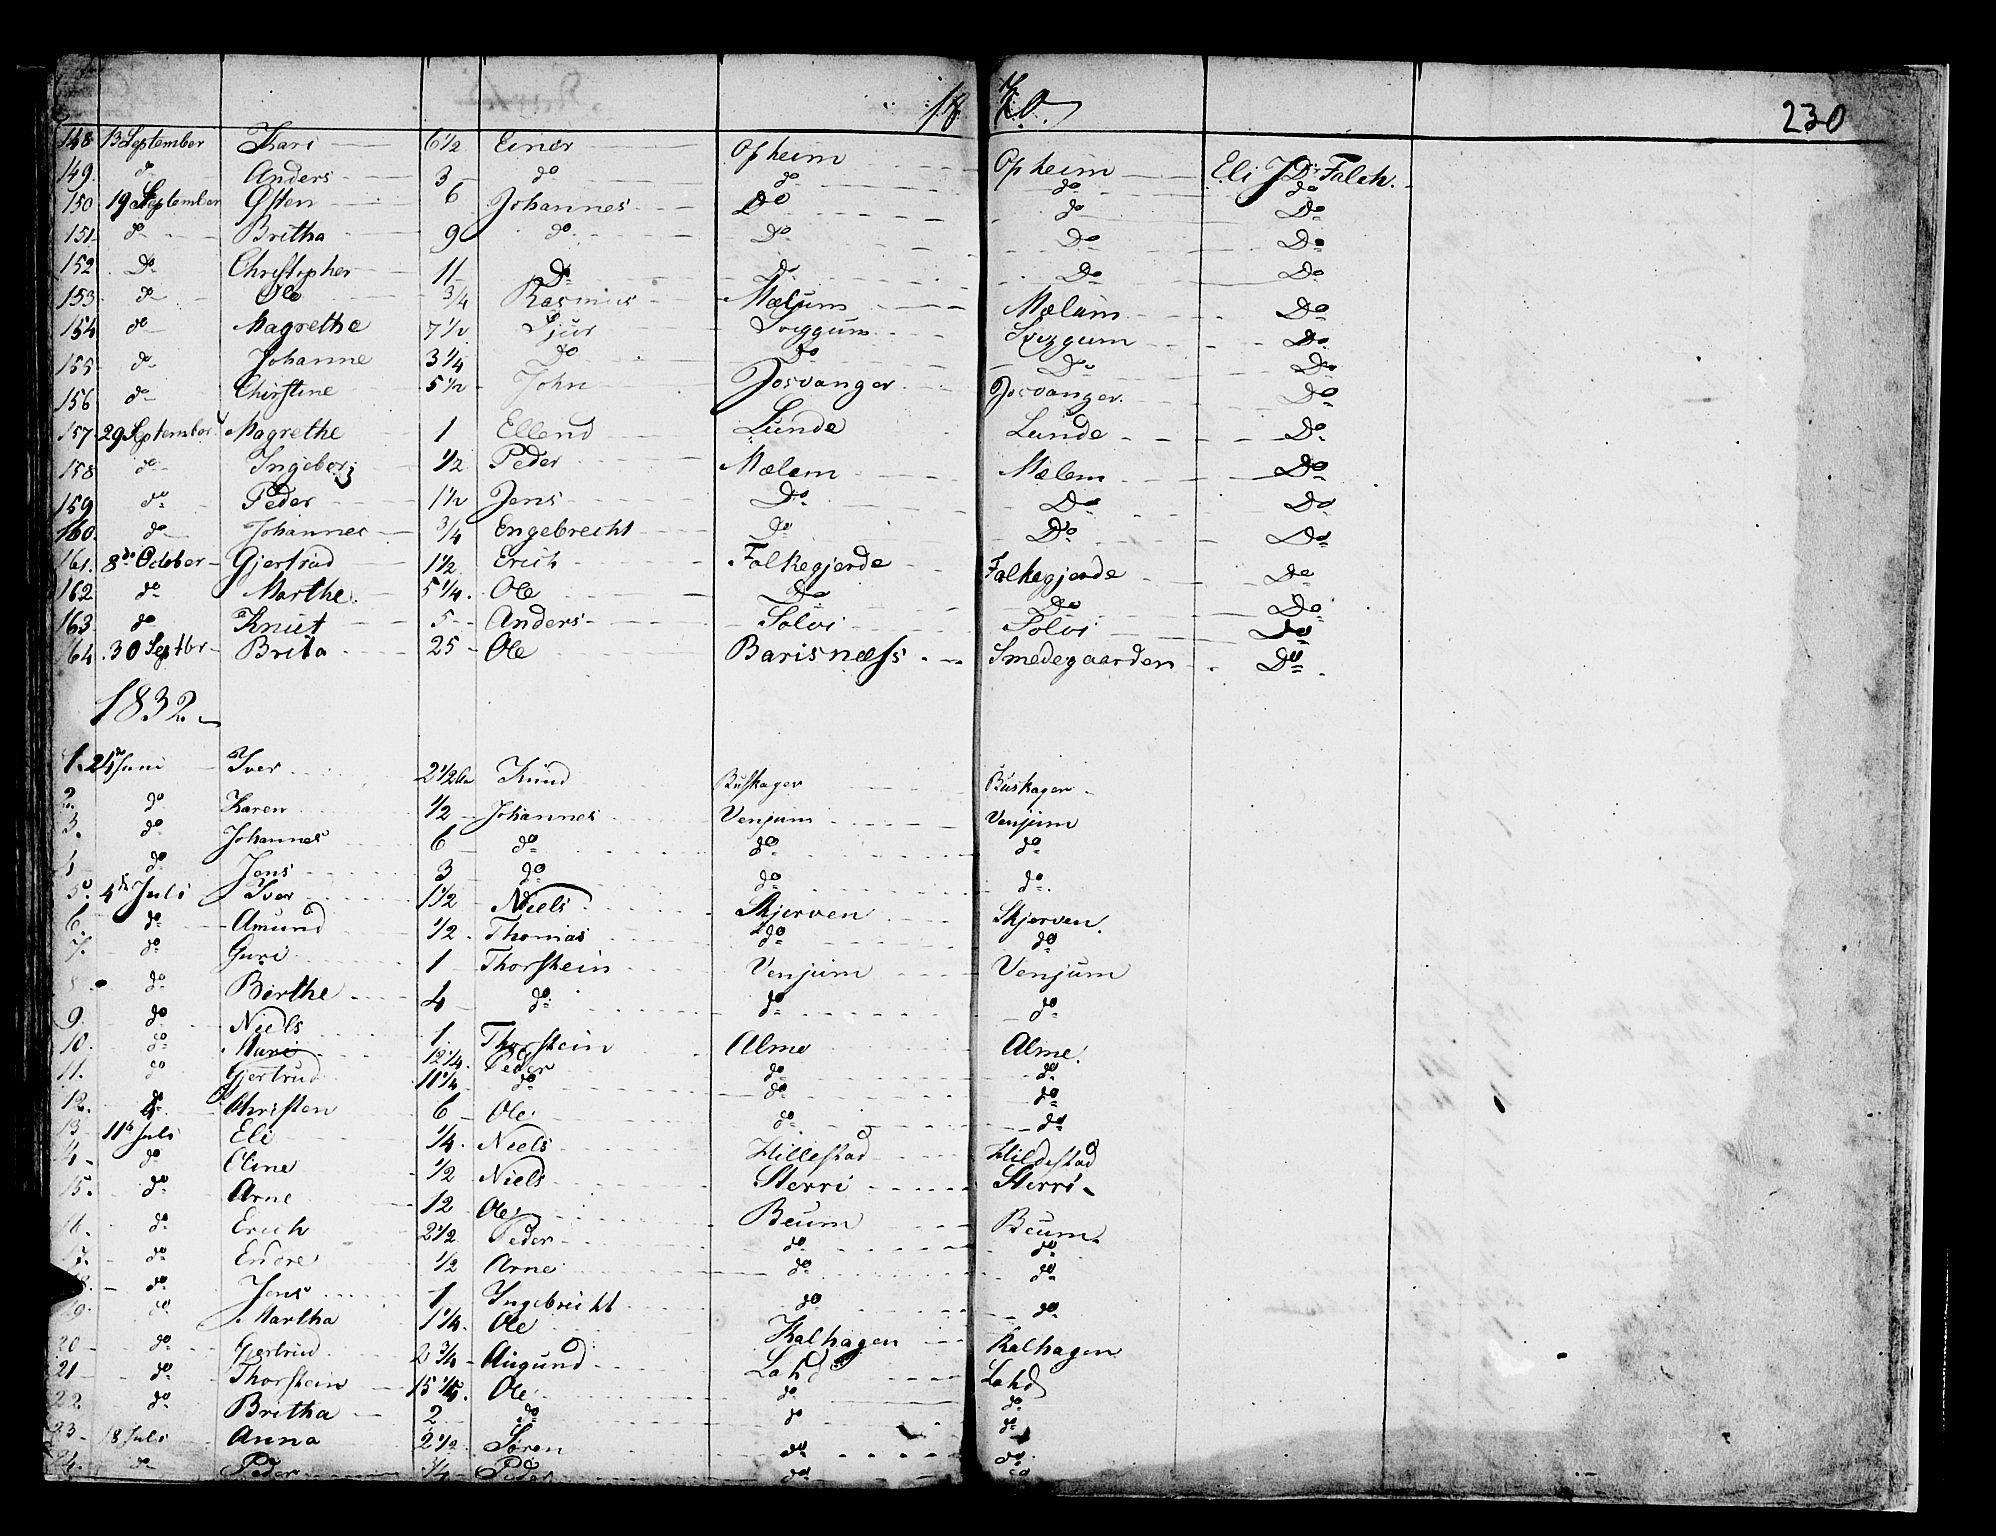 230
148 13 September Kari 6 1/2 Einer Opheim Opheim Eli J Dr Falch.
149. do Anders 3 do do do do
150 19 September Østen 6 Johannes Do do Do
151 do Britha 9 do Do Do Do
152 Do Christopher 11 Do d. Do Do
153 do Ole 3/4 Rasmus Mælum Mælum Do
154 do Magrethe 7 1/2 Sjur Sviggum Svizgum Do
155 do Johanne 3 1/4 Do Do Do Do
156 do Christine 5 1/2 John Josvanger Josvanger. Do
157 29 September Magrethe 1 Ellend Lunde Lunde Do
158 do Ingeborg 1/2 Peder Mælem Mælem Do
159 do Peder 1 1/2 Jens Do Do Do
160 do Johannes 3/4 Engebrecht Do Do Do
161. 8de October Gjertrud 1 1/2 Erich Falkegjerde Falkegjerde Do
162 do Marthe. 5 1/4. Ole Do Do Do
163 do Knut 5 Anders Solvi Solvi Do
64 30 Septbr Brita 25 Ole Barisness Smedegaarden Do
1832.
1. 24de Juni Iver 2 1/2 Knud Buskager Buskager
2. do Karen 1/2 Johannes Venjum Venjum
3. do Johannes 6 do do do
do Jens 3 do do do.
5. 4de Juli Iver 1 1/2 Niels Skjerven Skjerven.
6. do Amund 1/2 Thomas do do
7. do Guri 1 Thorstein Venjum Venjum
8 do Birthe 4 do do do
9. do Niels 1 Thorstein Alme Alme.
10. do 12 1/4. Peder do do
11. do Gjertrud 11 1/4 do do do
12. do Christen 6 Ole do do
13. 11te Juli Eli 1/4. Niels Hillestad Hildestad
4 do Eline 1/2 Niels Sterri Sterri
15. do Arne 12 Ole Beum Beum
16. do Erich 2 1/2 Peder do do
17. do Endre 1/2 Arne do do
18. do Jens 1 Ingebricht do do
19. do Martha 1 1/4. Ole Kalhagen Kalhagen
20 do Gjertrud 2 3/4 Augund Lahd Lahd
21 do Thorstein 15 Ole do do
22 do Britha 2 do do do
23. 18 Juli Anna 2 1/2 Søren do do
24. do Peder 3/4 Peder do do